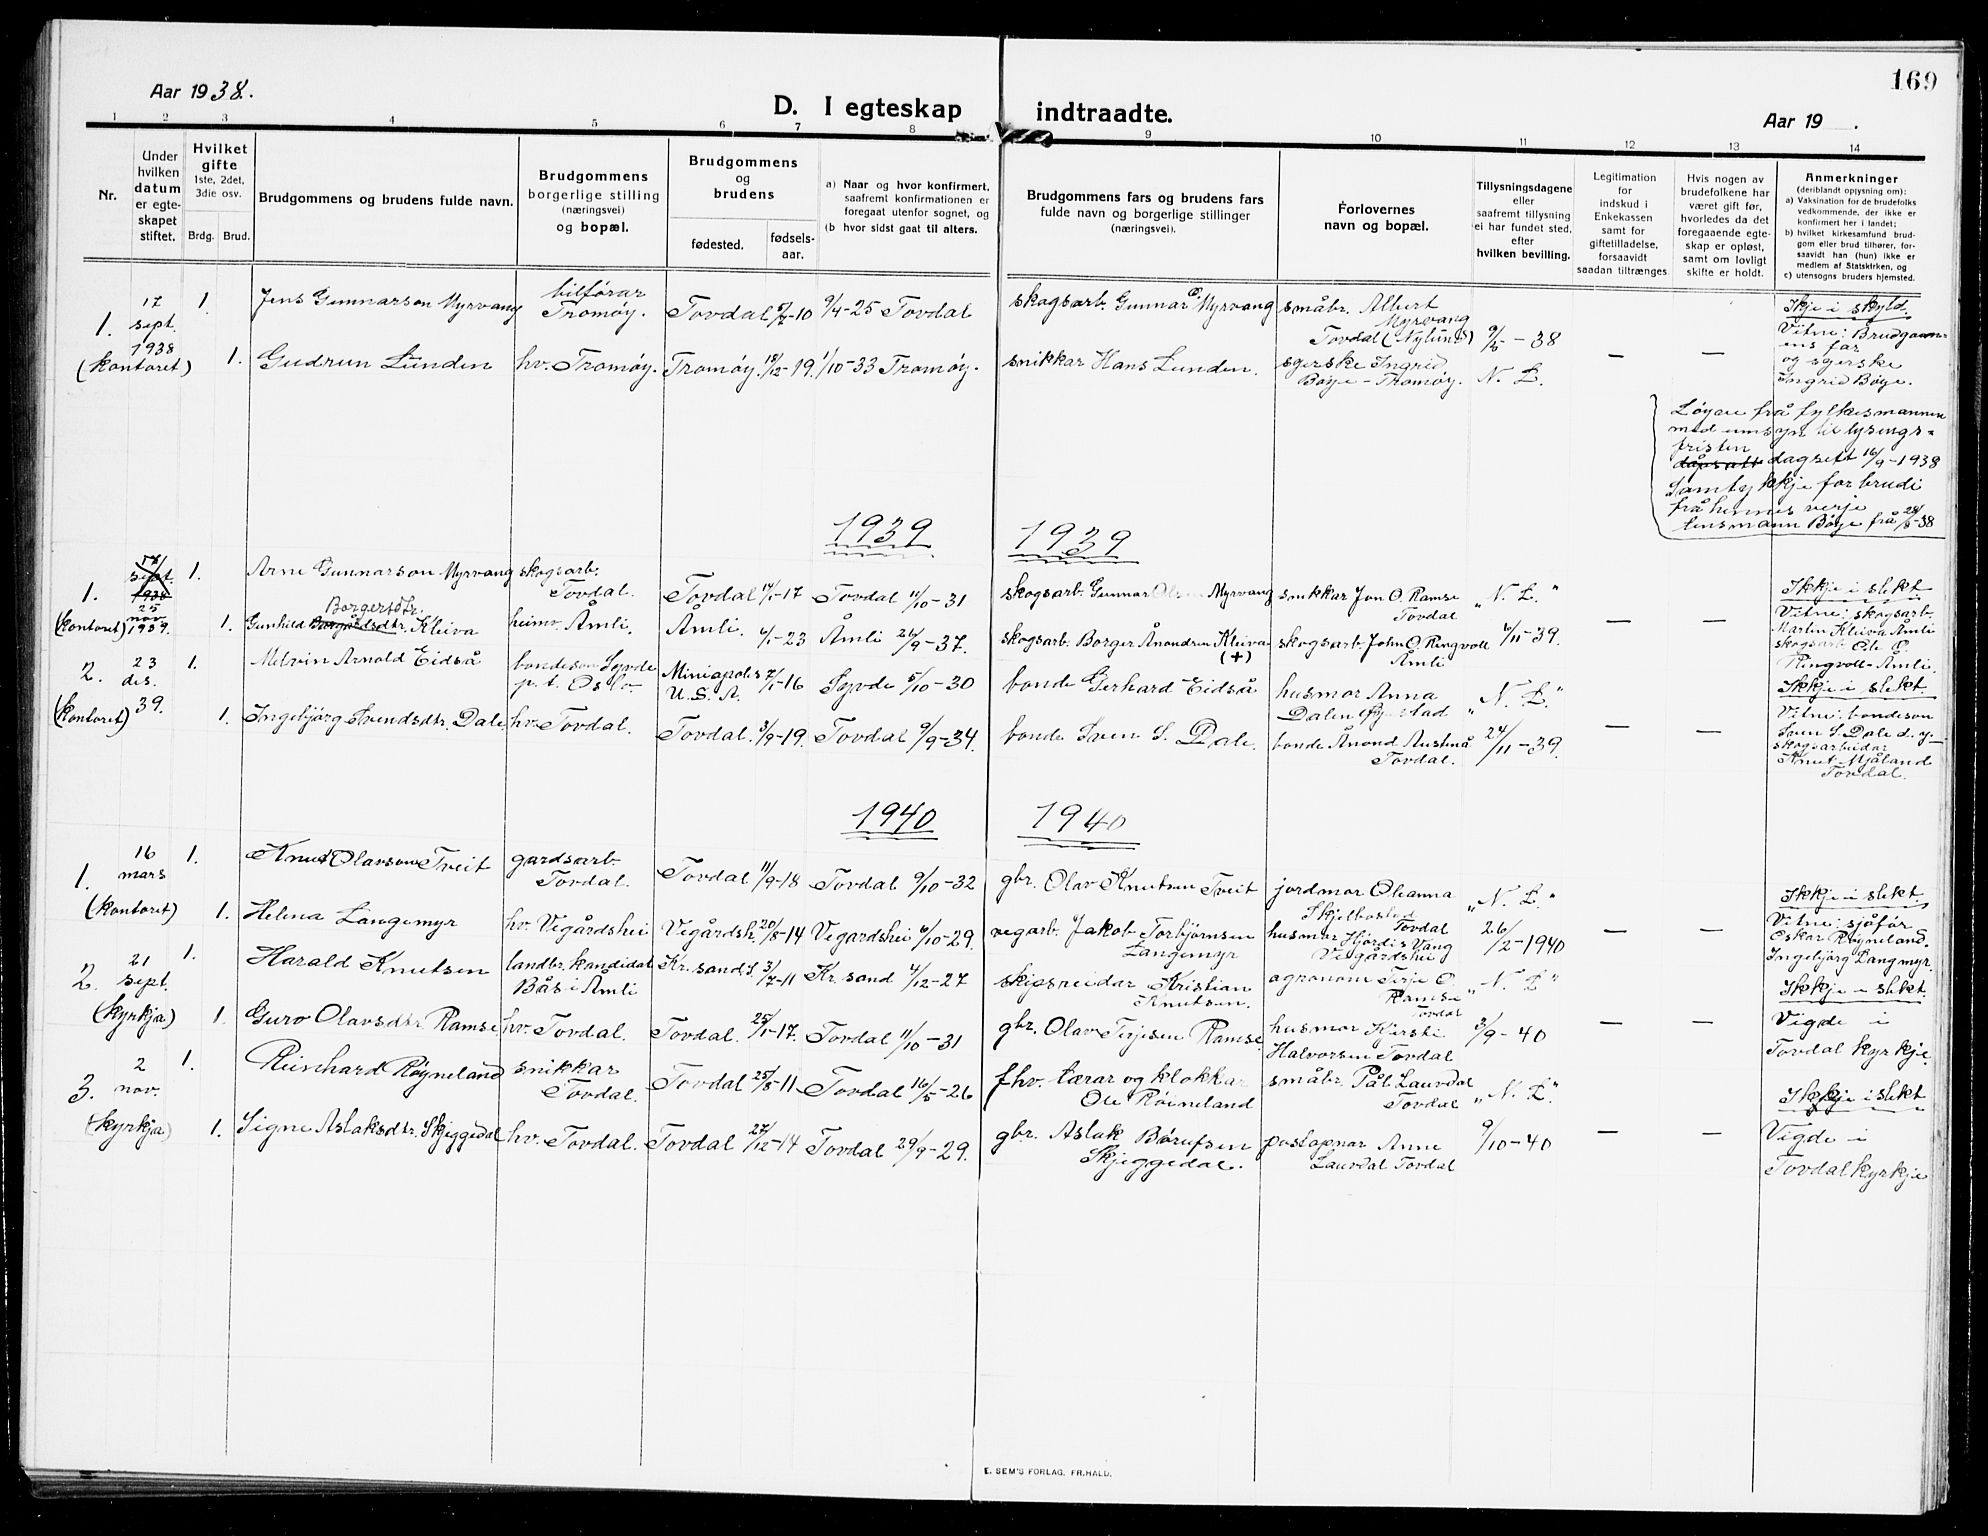 169
Aar 1938.
D. I egteskap indtraadte.
Aar 19 .
1 2 3 4 5 6 7 8 9 10 11 12 13 14
Nr.
Under hvilken datum er egteskapet stiftet.
Hvilket gifte 1ste, 2det, 3die osv.
Brdg. Brud.
Brudgommens og brudens fulde navn.
Brudgommens borgerlige stilling (næringsvei) og bopæl.
Brudgommens og brudens
fødested. fødselsaar.
a) Naar og hvor konfirmert, saafremt konfirmationen er foregaat utenfor sognet, og
(b hvor sidst gaat til alters.
Brudgommens fars og brudens fars fulde navn og borgerlige stillinger (næringsvei).
Forlovernes navn og bopæl.
Tillysningsdagene eller saafremt tillysning ei har fundet sted, efter hvilken bevilling.
Legitimation for indskud i Enkekassen samt for giftetilladelse, forsaavidt saadan tiltrænges
Hvis nogen av brudefolkene har været gift før, hvorledes da det foregaaende egteskap er opløst, samt om lovligt skifte er holdt.
Anmerkninger
(deriblandt opiysning om):
a) Vaksination for de brudefolks vedkommende, der ikke er konfirmert her i landet;
b) hvilket kirkesamfund brudgom eller brud tilhører, forsaavidt han (hun) ikke er medlem av Statskirken, og
c) utensogns bruders hjemsted.
1. 17 sept. 1938 (kontoret) 1. Jens Gunnarson Myrvang bilførar Tromøy. Tovdal 5/7-10 9/4-25 Tovdal skogsarb. Gunnar O. Myrvang småbr. Albert Myrvang Tovdal (Nylund) 9/5-38 Ikje i skyld.
1. Gudrun Lunden hv. Tromøy. Tromøy. 18/12-19. 1/10-33 Tromøy. snikkar Hans Lunden. syerske Ingrid Bøye - Tromøy. N. L. — — Vitne: Brudgomens far og syerske Ingrid Bøye.
Løyve frå fylkesmannen
med umsyn til lysings-
fristen
dagsett 16/9-1938
Samtykkje for brudi
frå hennes verje
lensmann Bøye frå 28/8-38
1939 1939
1. 17/ sept. 1938 25 nov. 1939. (kontoret) 1. Arne Gunnarson Myrvang skogsarb. Tovdal. Tovdal 14/1-17 Tovdal 11/10-31 skogsarb. Gunnar Olsen Myrvang snikkar Jon O. Ramse Tovdal „N. L." Ikkje i slekt.
1. Gunhild Borgersdtr. Kleiva heimv. Åmli. Åmli. 4/1-23 Åmli 26/9-37. skogsarb. Borger Ånondsen Kleiva (+) skogsarb. John O. Ringvoll Åmli 6/11-39. — — Vitne: skogsarb. Martin Kleiva Åmli skogsarb. Ole O. Ringvoll-Åmli.
2. 23 des. 39. (kontoret) 1. Melvin Arnold Eidså bondeson Syvde p.t. Oslo. Miniapolis U.S.A. 7/1-16 Syvde 5/10-30 bonde Gerhard Eidså husmor Anna Dalen „N. L." Ikkje i slekt.
1. Ingebjørg Svendsdtr. Dale hv. Tovdal. Tovdal. 3/9-19. Tovdal 9/9-34. bonde Sven S. Dale. bonde Ånond Austenå Tovdal. 24/11-39. — — Vitne: bondeson Sven S. Dale d.y. skogsarbeidar Knut Mjåland Tovdal.
1940 1940
1. 16 mars (kontoret) 1. Knut Olavson Tveit gardsarb. Tovdal. Tovdal 11/9-18 Tovdal 9/10-32 gbr. Olav Knutsen Tveit jordmor Oleanna Skjelbostad Tovdal „N. L." Ikkje i slekt.
1. Helena Langemyr hv. Vegårdshei Vegårdsh. 20/8-14 Vegardshei 6/10-29. vegarb. Jakob Torbjørnsen Langemyr husmor Hjørdis Vang Vegårdshei 26/2-1940 — — Vitne: sjåfør Oskar Røyneland. Ingebjørg Langmyr.
2. 21 sept. (kyrkja) 1. Harald Knutsen landbr. kandidat Bås i Åmli Kr.sand S. 3/7-11 Kr.sand 4/12-27 skipsreidar Kristian Knutsen. agronom Terje O. Ramse Tovdal „N. L" Ikkje i slekt.
1. Guro Olavsdtr. Ramse hv. Tovdal. Tovdal. 25/1-17. Tovdal 11/10-31 gbr. Olav Terjesen Ramse. husmor Kirsti Halvorsen Tovdal 3/9-40 — — Vigde i Tovdal kyrkje.
3. 2 nov. (kyrkja) 1. Reinhard Røyneland snikkar Tovdal. Tovdal 25/8-11 Tovdal 16/5-26 fhv. lærar og klokkar Ole Røineland småbr. Pål Lauvdal Tovdal „N. L." Ikkje i slekt
1. Signe Aslaksdtr. Skjeggedal hv. Tovdal. Tovdal 27/12-14 Tovdal 29/9-29. gbr. Aslak Børufsen Skjeggedal. postopnar Anne Lauvdal Tovdal 9/10-40 — — Vigde i Tovdal kyrkje
E. SEM'S FORLAG, FR.HALD.